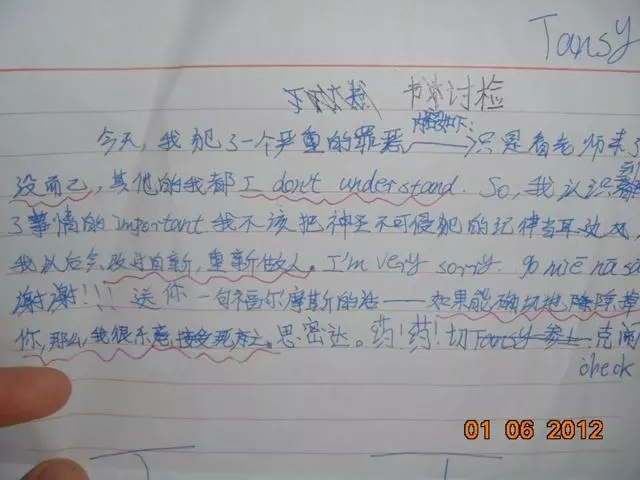 Tansy
书讨检
今天,我犯了一个严重的罪恶——内容如下:只是看老师来了
没而已,其他的我都I don't understand. So,我认识到
了事情的important.我不该把神圣不可侵犯的纪律当耳边风,
我以后会改过自新,重新做人。I'm very sorry. go miē nā sā
谢谢!!!送你一句福尔摩斯的话——如果能确切地除掉
你,那么我很乐意接受死亡。思密达。药!药!切Tansy 参上 克闹
check
01 06 2012